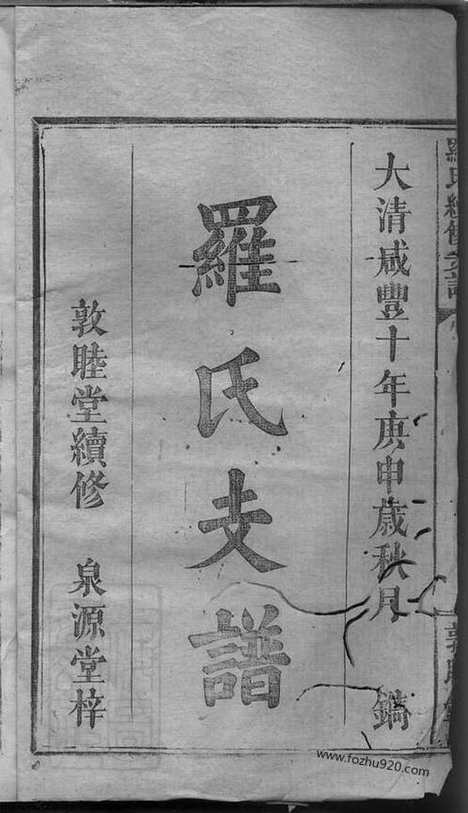 大清咸豐十年庚申歲秋月 鐫
羅氏支譜
敦睦堂續修 泉源堂梓
羅氏續修支譜
敦睦堂
www.fozhu920.com